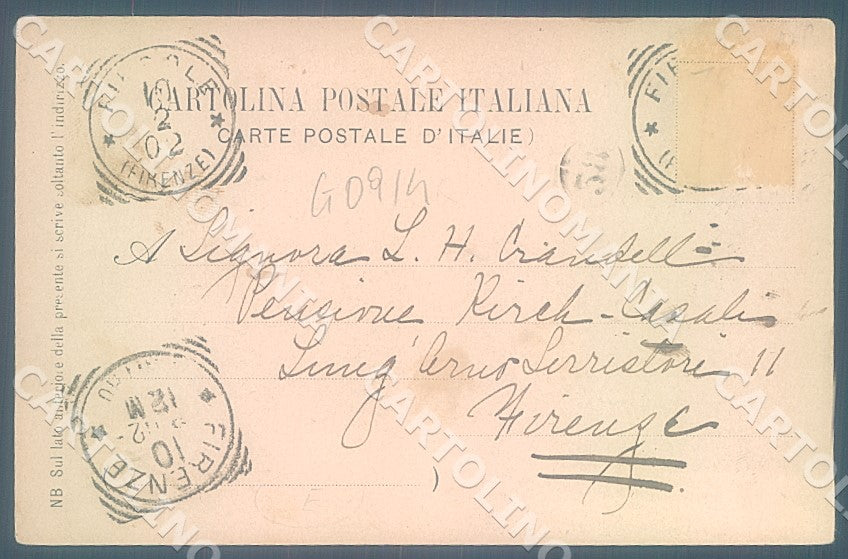 FIESOLE
10
2
02
(FIRENZE)
FI
CARTOLINA POSTALE ITALIANA
(CARTE POSTALE D'ITALIE)
54
G0914
A Signora L. H. Crandell
Pensione Kirch-Casali
Lung'Arno Serristori 11
Firenze
FIRENZE
10
12 M
)
NB Sul lato anteriore della presente si scrive soltanto l'indirizzo.
CARTOLINOMANIA